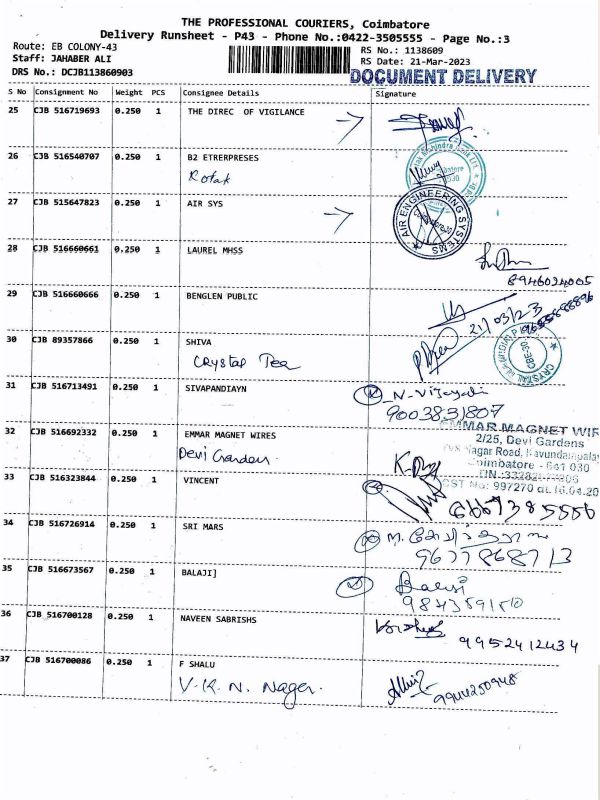 THE PROFESSIONAL COURIERS, Coimbatore
Delivery Runsheet - P43 - Phone No.:0422-3505555 - Page No.:3
Route: EB COLONY-43
RS No.: 1138609
Staff: JAHABER ALI
RS Date: 21-Mar-2023
DRS No.: DCJB113860903
DOCUMENT DELIVERY
S No Consignment No Weight PCS Consignee Details Signature
25 CJB 516719693 0.250 1 THE DIREC OF VIGILANCE
26 CJB 516540707 0.250 1 B2 ETRERPRESES
Kotak
27 CJB 515647823 0.250 1 AIR SYS
AIR ENGINEERING SYSTEMS
28 CJB 516660661 0.250 1 LAUREL MHSS
8946024005
29 CJB 516660666 0.250 1 BENGLEN PUBLIC
21/03/23
30 CJB 89357866 0.250 1 SHIVA
Crystal Tea
31 CJB 516713491 0.250 1 SIVAPANDIAYN
N-Vijayadi
9003831807
32 CJB 516692332 0.250 1 EMMAR MAGNET WIRES
Devi Garden
EMMAR MAGNET WIR
2/25, Devi Gardens
Nagar Road, Kavundampalay
Coimbatore - 641 030
33 CJB 516323844 0.250 1 VINCENT
CST No: 997270 dt.16.04.20
6667385556
34 CJB 516726914 0.250 1 SRI MARS
9677868713
35 CJB 516673567 0.250 1 BALAJI]
Balaji
36 CJB 516700128 0.250 1 NAVEEN SABRISHS
9952412434
37 CJB 516700086 0.250 1 F SHALU
V.K.N. Nager.
9944250948